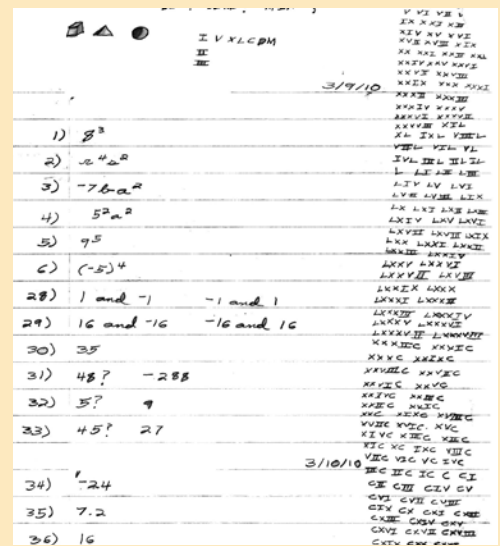 I V X L C D M
II
III
3/9/10
1) 8³
2) r⁴s²
3) -7ba²
4) 5²a²
5) 9⁵
6) (-5)⁴
28) 1 and -1 -1 and 1
29) 16 and -16 -16 and 16
30) 35
31) 48? -288
32) 5? 9
33) 45? 27
3/10/10
34) -24
35) 7.2
36) 16
IX XXI XII
XIV XV XVI
XVII XVIII XIX
XX XXI XXII XXI
XXIV XXV XXVI
XXVII XXVIII
XXIX XXX XXXI
XXXII XXXIII
XXXIV XXXV
XXXVI XXXVII
XXXVIII XIL
XL IXL VIIIL
VIIL VIL VL
IVL IIIL IIL IL
L LI LII LIII
LIV LV LVI
LVII LVIII LIX
LX LXI LXII LXIII
LXIV LXV LXVI
LXVII LXVIII LXIX
LXX LXXI LXXII
LXXIII LXXIV
LXXV LXXVI
LXXVII LXVIII
LXXIX LXXX
LXXXI LXXXII
LXXXIII LXXXIV
LXXXV LXXXVI
LXXXVII LXXXVIII
XXXIIC XXXIC
XXXC XXIXC
XXVIIIC XXVIIC
XXVIC XXVC
XXIVC XXIIIC
XXIIC XXIC
XXC XIXC XVIIIC
XVIIC XVIC XVC
XIVC XIIIC XIIC
XIC XC IXC VIIIC
VIIC VIC VC IVC
IIIC IIC IC C CI
CII CIII CIV CV
CVI CVII CVIII
CIX CX CXI CXII
CXIII CXIV CXV
CXVI CXVII CXVIII